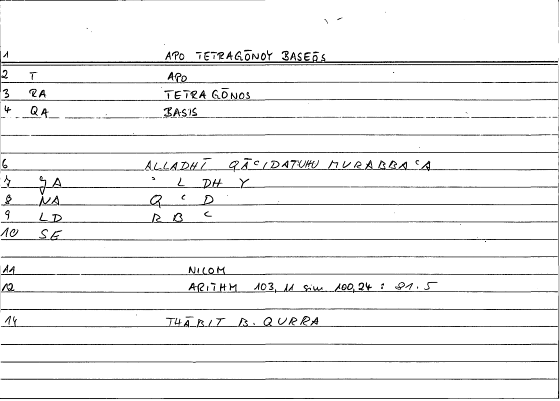 1 APO TETRAGŌNOY BASEŌS
2 T APO
3 RA TETRAGŌNOS
4 QA BASIS
6 ALLADHĪ QĀcIDATUHU MURABBAcA
7 JA ' L DH Y
8 NA Q c D
9 LD R B c
10 SE
11 NICOM
12 ARITHM 103, 11 sim 100,24 : 81.5
14 THĀBIT B. QURRA